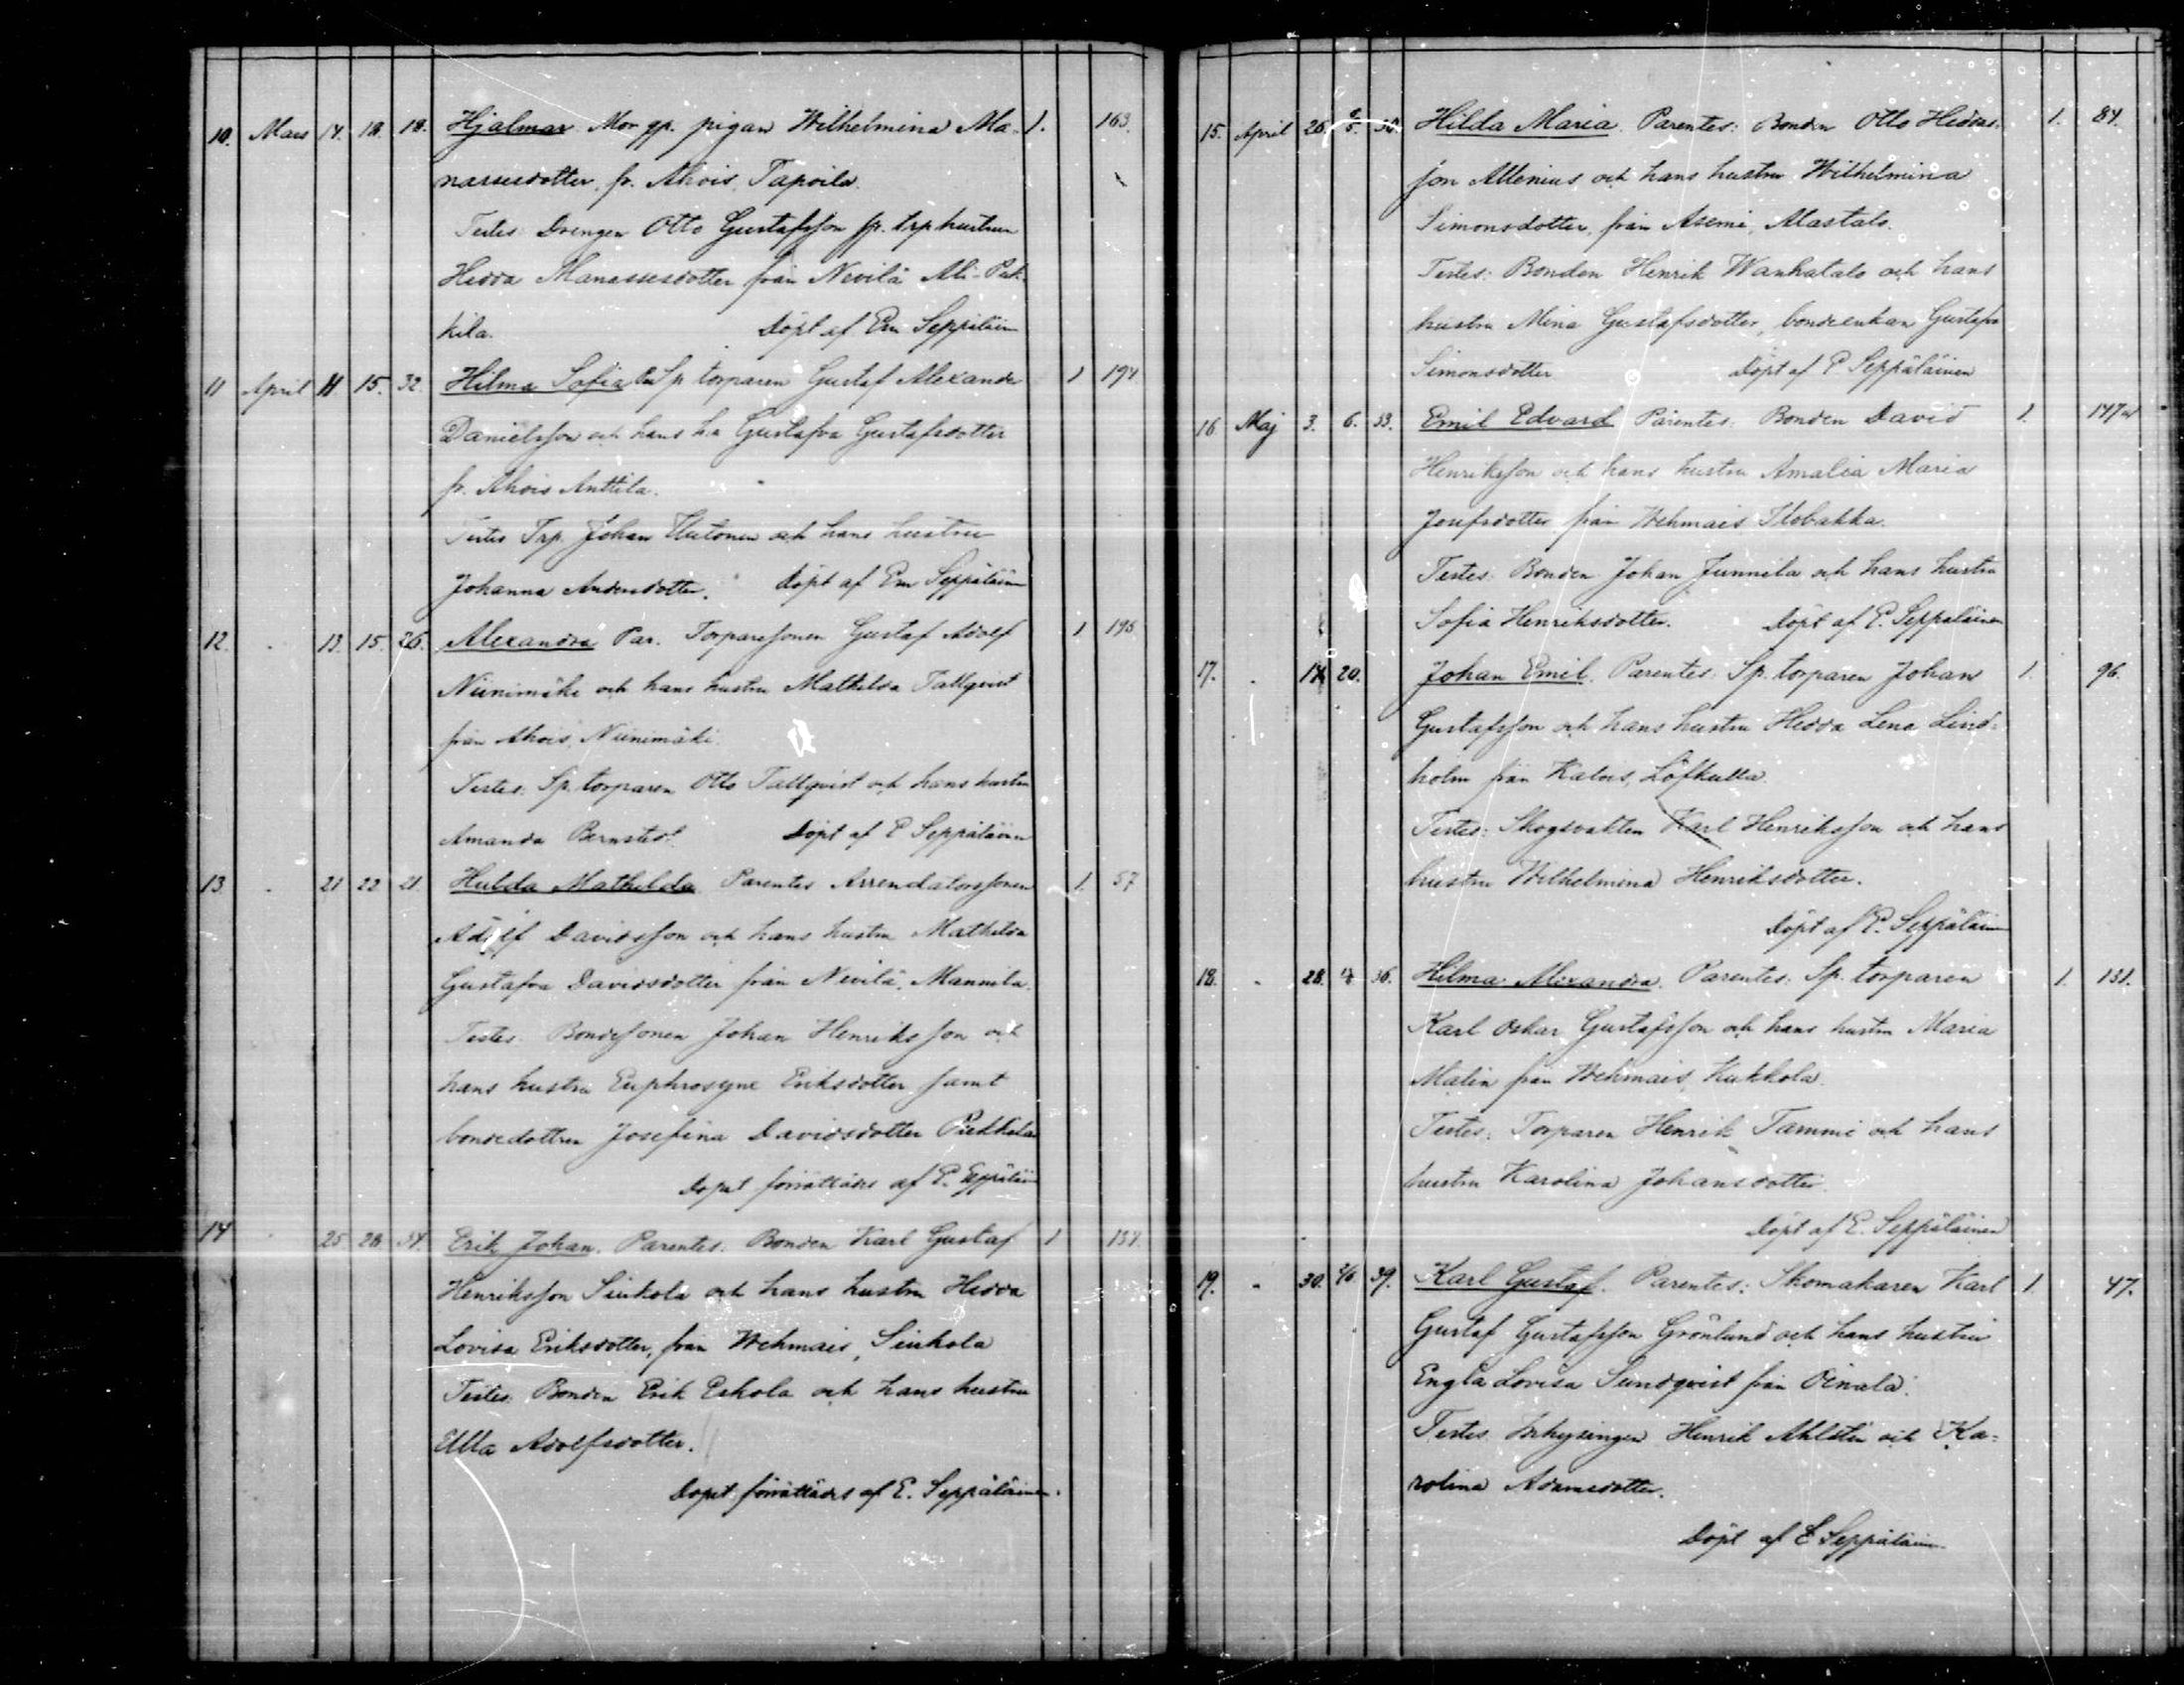 10. Mars 14. 18. 18. Hjalmar. Mor gp. pigan Wilhelmina Ma- 1. 163.
nassesdotter, fr. Ahois, Tapoila.
Testes: Drengen Otto Gustafsson fr. trp hustrun
Hedda Manassesdotter från Nevilä Ali-Piek-
kila. Döpt af Em Seppäläin
11 April 11. 15. 32. Hilma Sofia Sp torparen Gustaf Alexander 1 194
Danielsson och hans h:a Gustafva Gustafsdotter
fr. Ahois Anttila.
Testes Trp. Johan och hans hustru
Johanna Andersdotter. Döpt af Em Seppäläin
12. 13. 15. 26. Alexandra Par. Torparesonen Gustaf Adolf 1 195
Niinimäki och hans hustru Mathilda Tallqvist
från Ahois, Niinimäki.
Testes: Sp. torparen Otto Tallqvist och hans hustru
Amanda Bernsted. Döpt af E Seppäläinen
13. 21 22 21. Hulda Mathilda Parentes Arrendatorssonen 1. 57
Adolf Davidsson och hans hustru Mathilda
Gustafva Davidsdotter från Nevilä, Mannila.
Testes: Bondesonen Johan Henriksson och
hans hustru Euphrosyne Eriksdotter samt
bondedottren Josefina Davidsdotter Piekkila
Dopet förrättades af E. Seppäläin
14 25 28 34. Erik Johan. Parentes: Bonden Karl Gustaf 1 134.
Henriksson Sinkola och hans hustru Hedda
Lovisa Eriksdotter, från Wehmais, Sinkola
Testes: Bonden Erik Eskola och hans hustru
Ulla Adolfsdotter.
Dopet förrättades af E. Seppäläinen.
15. April 26 30. Hilda Maria. Parentes: Bonden Otto Heddas- 1. 84.
son Allenius och hans hustru Wilhelmina
Simonsdotter, från Asemi, Alastalo.
Testes: Bonden Henrik Wanhatalo och hans
hustru Mina Gustafsdotter, bondeenkan Gustafva
Simonsdotter Döpt af E Seppäläinen
16. Maj 3. 6. 33. Emil Edvard Parentes: Bonden David 1. 147
Henriksson och hans hustru Amalia Maria
Josefsdotter från Wehmais Isobakka.
Testes: Bonden Johan Junnila och hans hustru
Sofia Henriksdotter. Döpt af E. Seppäläinen
17. 14 20. Johan Emil. Parentes: Sp. torparen Johan 1. 96.
Gustafsson och hans hustru Hedda Lena Lind-
holm från Kalois, Löfkulla.
Testes: Skogsvakten Karl Henriksson och hans
hustru Wilhelmina Henriksdotter.
Döpt af E. Seppäläin
18. 28. 36. Hilma Alexandra. Parentes: Sp. torparen 1. 131.
Karl Oskar Gustafsson och hans hustru Maria
Malin från Wehmais, Kukkola.
Testes: Torparen Henrik Tammi och hans
hustru Karolina Johansdotter.
Döpt af E. Seppäläinen
19. 30. 2/6 39. Karl Gustaf. Parentes: Skomakaren Karl 1. 47.
Gustaf Gustafsson Grönlund och hans hustru
Engla Lovisa Sundqvist från Oinala.
Testes: Inhysingen Henrik Ahlstén och Ka-
rolina Adamsdotter.
Döpt af E Seppäläin